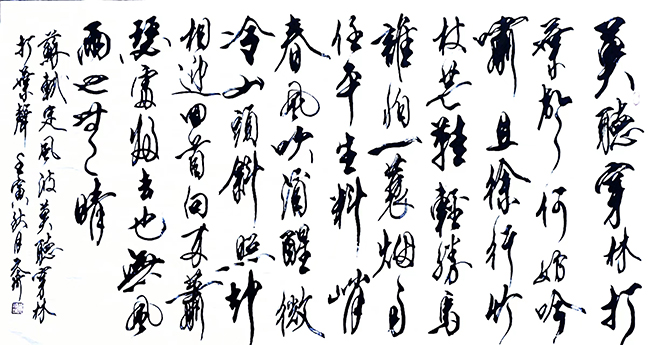 莫聽穿林打
葉聲何妨吟
嘯且徐行竹
杖芒鞋輕勝馬
誰怕一蓑烟雨
任平生料峭
春風吹酒醒微
冷山頭斜照却
相迎回首向來蕭
瑟處歸去也無風
雨也無晴
蘇軾定風波莫聽穿林
打葉聲壬寅秋月